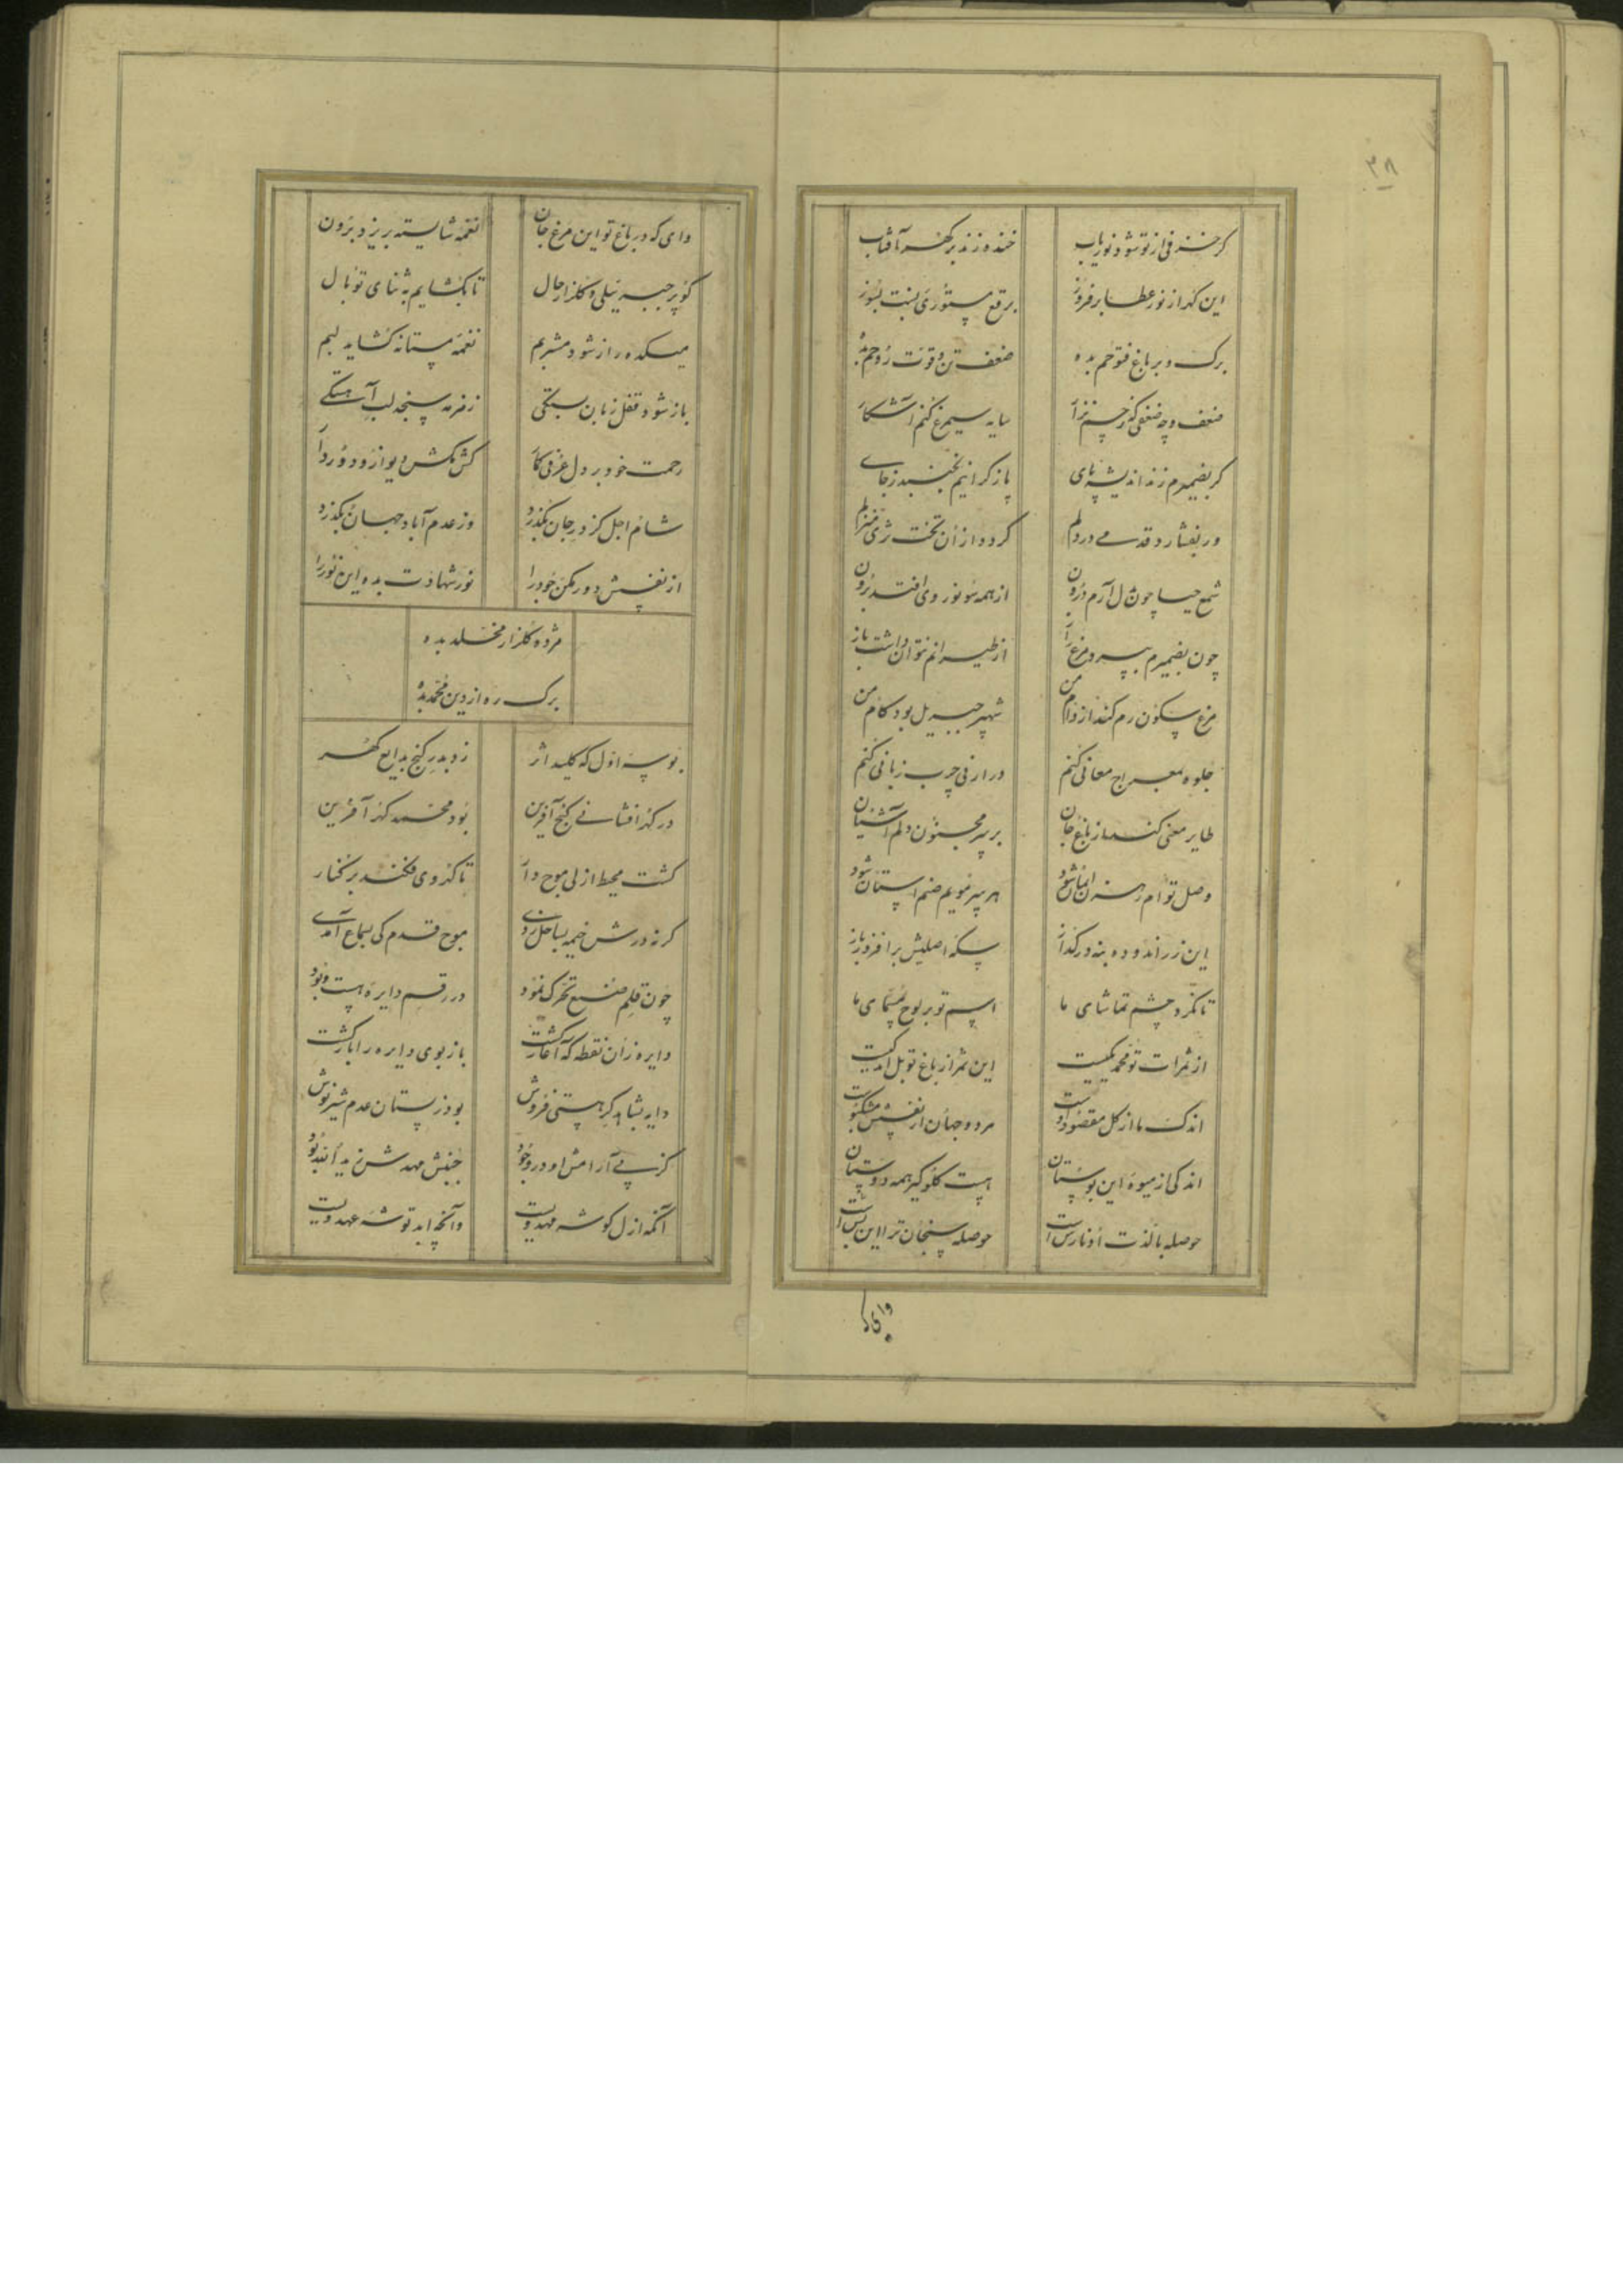 ۳۸
گر خزفی از تو شود نوریاب خنده زند بر گهر آفتاب
این گهر از نور عطا بر فروز برقع مستوری بنت بسوز
برگ و بر باغ فتوحم بده ضعف تن و قوت روحم بده
ضعف و چه ضعفی که سایه سیمرغ کنم آشکار
گر بضمیرم زند اندیشه پای باز گرانیم نجنبد ز جای
ور بفشارد قدمی در دلم گردد از آن تخت ثری منزلم
شمع حیا چون دل آرم درون از همه سو نور وی افتد برون
چون بضمیرم بپرد مرغ راز از طیرانم نتوان داشت باز
مرغ سکون رم کند از دام من شهپر جبریل بود کام من
جلوه بمعراج معانی کنم در ارنی چرب زبانی کنم
طایر معنی کند از باغ جان بر سر مجنون دلم آشیان
وصل توام رهزن ایمان شود هر سر مویم صنم استان شود
این زر اندوده بنه در گداز سکه اصلیش برافروز باز
تا نگرد چشم تماشای ما اسم تو بر لوح مسمای ما
از ثمرات تو محمد یکیست این ثمر از باغ تو بل اندکیست
اندک ما از کل مقصود اوست هر دو جهان از نفسش مشکبوست
اندکی از میوه این بوستان هست گلوگیر همه دوستان
حوصله با لذت او نارس است حوصله سنجان ترا این بس است
وای که
وای که در باغ تو این مرغ جان نغمه شایسته بریزد برون
کو پر جبریلی و گلزار حال تا بگشایم به ثنای تو بال
میکده راز شود مشربم نغمه مستانه گشاید لبم
باز شود قفل زبان بستگی زمزمه سنجد لب آهستگی
رحمت خود بر دل عرفی گمار کش مکش دیو ازو دور دار
شام اجل کز در جان بگذرد وز عدم آباد جهان بگذرد
از نفسش دور مکن خود را نور شهادت بده این نور را
مژده گلزار مخلد بده
برگ ره از دین محمد بده
بوسه اول که کلید اثر زد بدر گنج بدایع گهر
در گهر افشانی گنج آفرین بود محمد گهر آفرین
گشت محیط ازلی موج دار تا گهر وی فکند بر کنار
گر نه درش خیمه بساحل زدی موج قدم کی بسماع آمدی
چون قلم صنع تحرک نمود در رقم دایره هست و بود
دایره زان نقطه که آغاز گشت باز بوی دایره را باز گشت
دایه بشاهد گر هستی فروش بود ز پستان عدم شیر نوش
کز پی آرامش او در وجود جنبش مهد شرف ید الله بود
آنکه ازل گوشه مهد ویست وآنچه ابد توشه عهد ویست